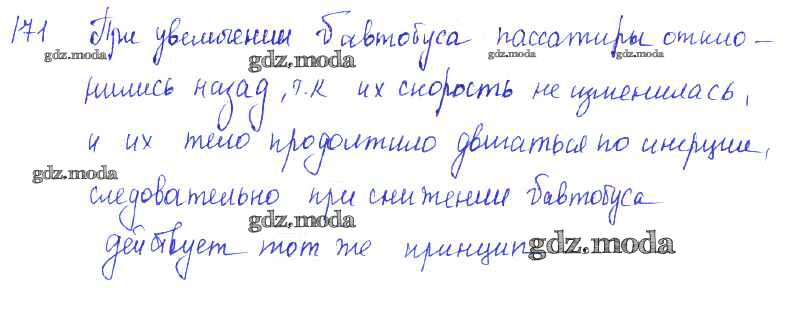 171 При увеличении υ автобуса пассажиры откло-
gdz.moda gdz.moda gdz.moda
нились назад, т.к их скорость не изменилась,
и их тело продолжило двигаться по инерции,
gdz.moda
следовательно при снижении υ автобуса
gdz.moda
действует тот же принцип
gdz.moda